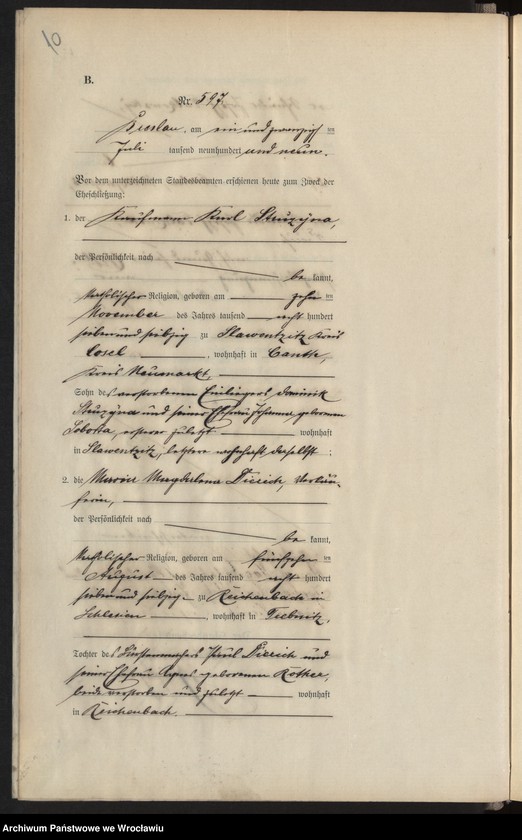 10
B.
Nr. 597
Breslau, am ein und zwanzigsten
Juli tausend neunhundert und neun.
Vor dem unterzeichneten Standesbeamten erschienen heute zum Zweck der
Eheschließung:
1. der Kaufmann Karl Struzyna,
der Persönlichkeit nach
be kannt,
katholischer Religion, geboren am zehnten
November des Jahres tausend acht hundert
siebenundsiebzig zu Slawentzitz Kreis
Cosel, wohnhaft in Canth,
Kreis Neumarkt,
Sohn des verstorbenen Einliegers Dominik
Struzyna und seiner Ehefrau Johanna, geborenen
Sobotta, ersterer zuletzt wohnhaft
in Slawentzitz, letztere wohnhaft daselbst;
2. die Maria Magdalena Dierich, Verkäu-
ferin,
der Persönlichkeit nach
be kannt,
katholischer Religion, geboren am fünfzehnten
August des Jahres tausend acht hundert
siebenundsiebzig zu Reichenbach in
Schlesien, wohnhaft in Trebnitz,
Tochter des Bürstenmachers Paul Dierich und
seiner Ehefrau Agnes geborenen Rother,
beide verstorben und zuletzt wohnhaft
in Reichenbach.
Archiwum Państwowe we Wrocławiu